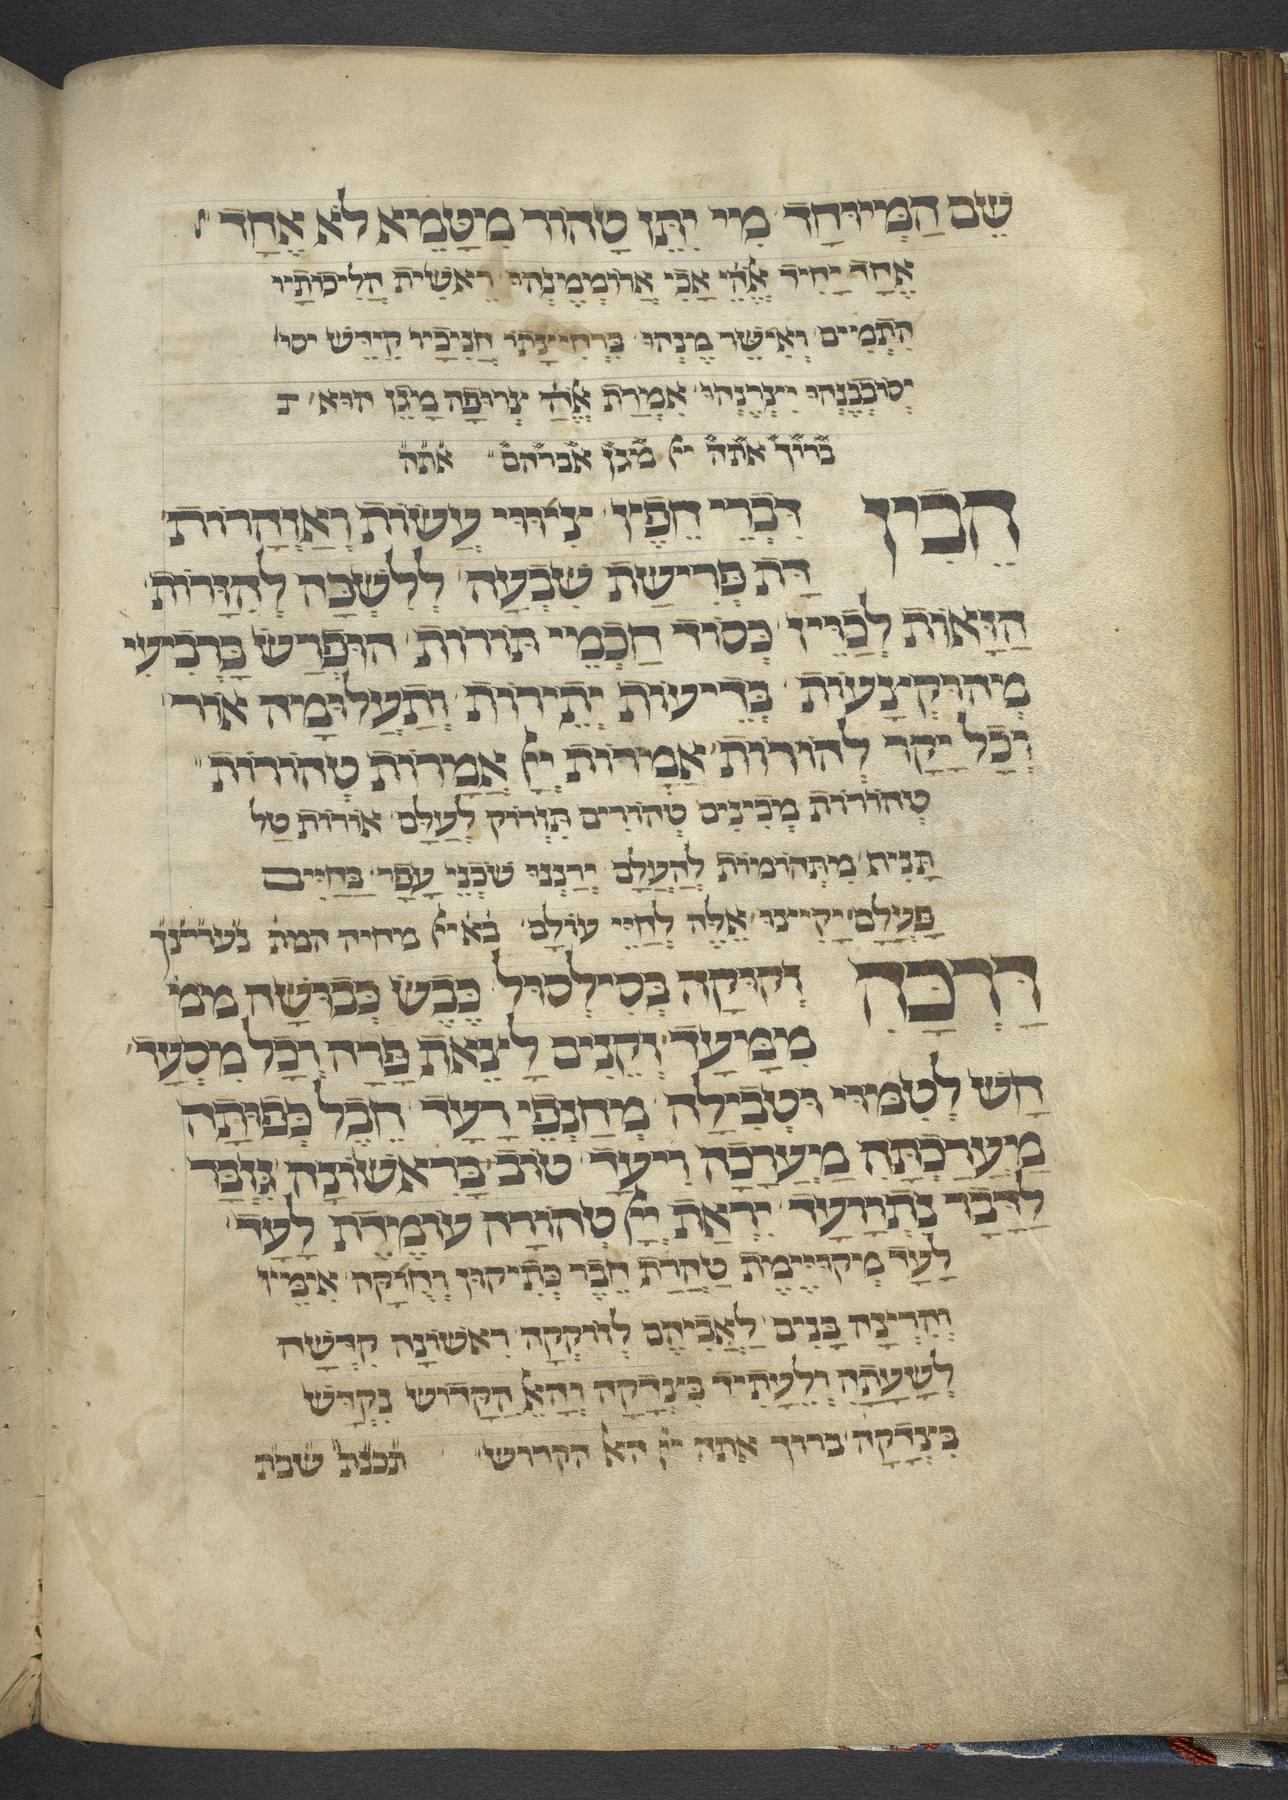 שֵׁם הַמְּיוּחָד מִי יִתֵּן טָהוֹר מִטָּמֵא לֹא אֶחָד
אֶחָד יָחִיד אֱלֹהֵי אָבִי אֲרוֹמְמֶנְהוּ רֵאשִׁית הֲלִיכוֹתָיו
הַתְּמִיִים
יְסוֹבְבֶנְהוּ יִיצְּרֶנְהוּ אִמְרַת אֱלוֹהַּ צְרוּפָה מָגֵן הוּא
ברוך אתה יי מגן אברהם אתה
הֵכִין דִּבְרֵי חֵפֶץ צִיוּוּי עֲשׂוֹת וְאַזְהָרוֹת
דָּת פְּרִישַׁת שִׁבְעָה לְלִשְׁכָּה לְהַזָּרוֹת
הַזָּאוֹת לְכַוֵּין כְּסוֹד חַכְמֵי תּוֹרוֹת הוּפְרַשׁ בָּרְבִיעִי
מְהוּקְצָעוֹת בְּדֵיעוֹת יְתֵירוֹת וְתַעֲלוּמָה אוֹר
וְכָל יְקָר לְהוֹרוֹת אִמֲרוֹת יְיָ אֲמָרוֹת טְהוֹרוֹת
טְהוֹרוֹת מְבִינִים טְהוֹרִים תִּזְרוֹק לְעֻלָּם אוֹרוֹת טַל
תָּנִית מִתְּהוֹמוֹת לְהַעֲלָם יְרַנְּנוּ שׁוֹכְנֵי עָפָר בַּחַיִּים
בְּפָעֳלָם יָקִיצוּ אֵלֶּה לְחַיֵּי עוֹלָם בא״י מחיה המת
זְקוּקָה בְּסִילְסוּל כֶּבֶשׂ כְּבוּשָׁה ממ
מִמָּעַד זְקֵנִים לָצֵאת פָּרָה וְכָל מִסְעָד
חָשׁ לְטִמּוּי וּטְבִילָה מֵחַנְפֵי רָעַד חֶבֶל כְּפוּתָה
מַעֲרַכְתָּהּ מַעֲרָכָה וִיעָד טוֹב בָּרִאשׁוֹנָה גִּזְבָּר
לְדָבָר נִתְוָועַד יִרְאַת יְיָ טְהוֹרָה עוֹמֶדֶת לָעַד
לָעַד מְקוּיֶּימֶת טַהֲרַת חֵבֶר כְּתִיקוּן וְחֻוקָּה אִימֵּץ
וְחִרְיצָה בָּנִים לַאֲבִיהֶם לְזוֹקְקָה רִאשׁוֹנָה קִדְּשָׁהּ
לְשָׁעָתָהּ וְלֶעָתִיד בִּצְדָקָה וְהָאֵל הַקָּדוֹשׁ נִקְדָּשׁ
בִּצְדָקָה ברוך אתה יי הא הקדוש תכנת שבת